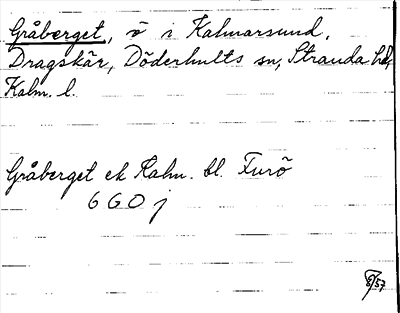 Gråberget, ö i Kalmarsund,
Dragskär, Döderhults sn, Stranda hd,
Kalm. l.
Gråberget ek Kalm. bl. Furö
6 G O j
57